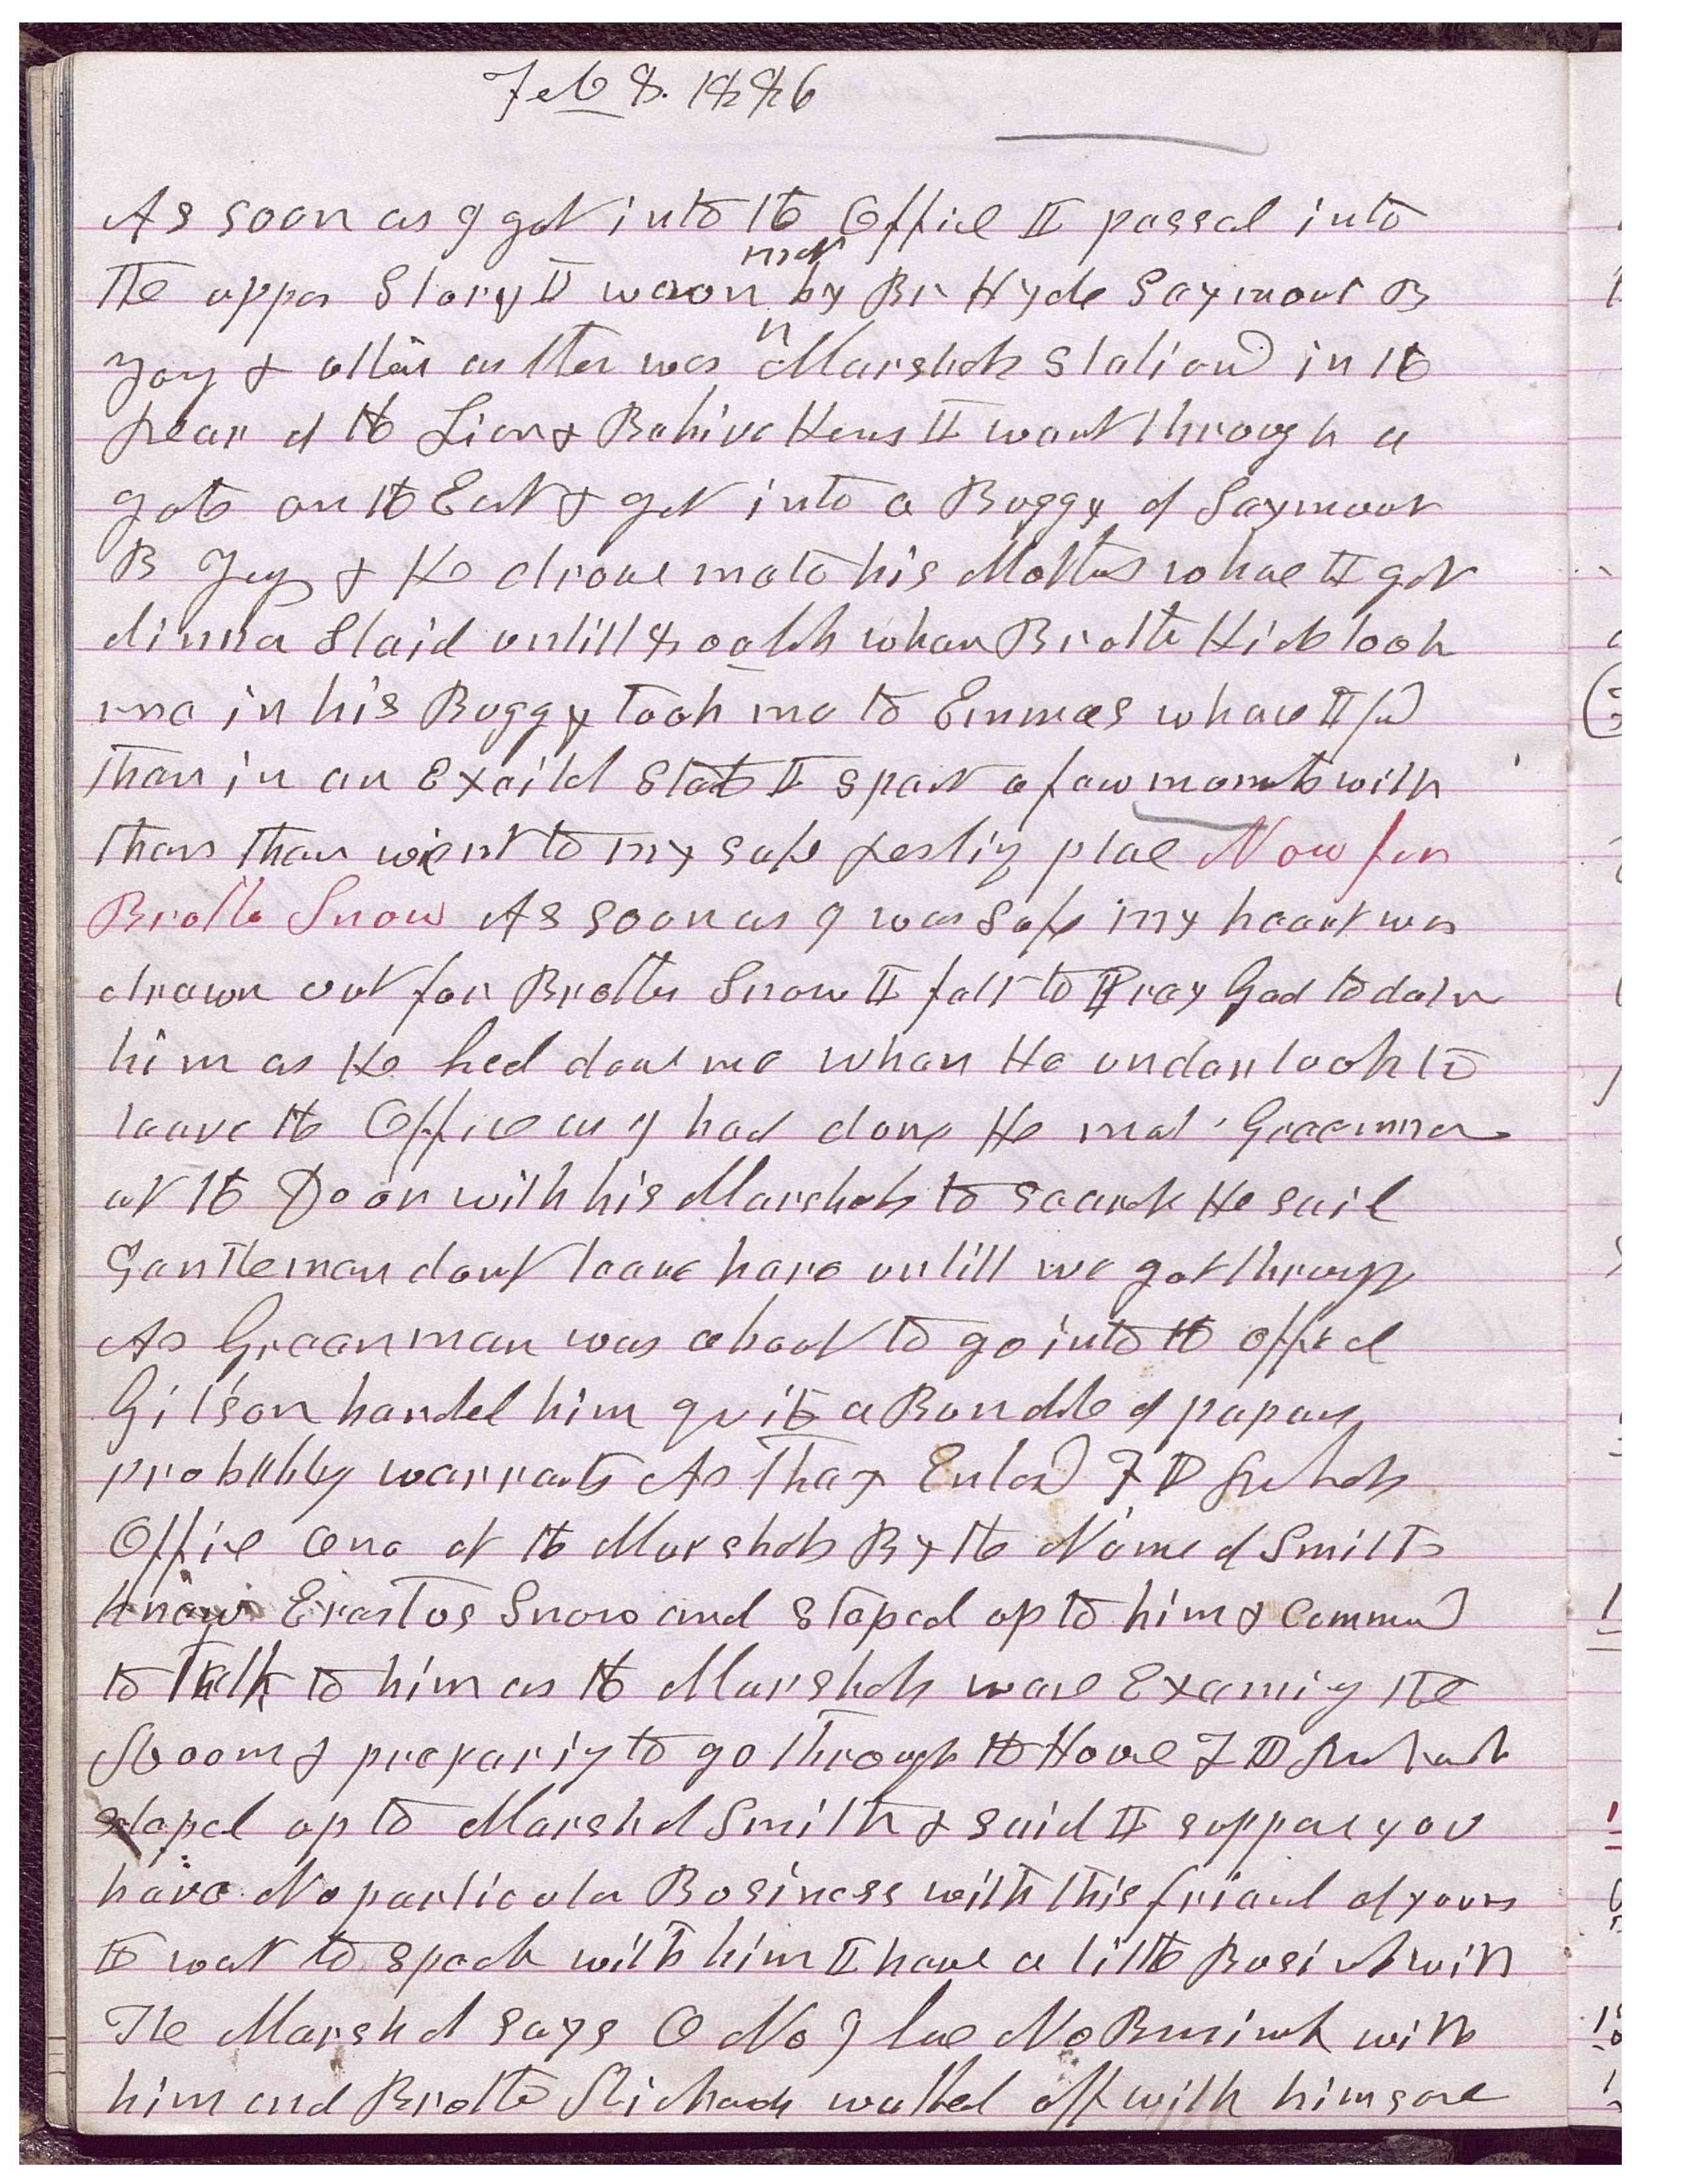 Feb 8. 1886
As soon as I got into the Office I passed into
the upper Story I was soon met by Br Hyde Seymour B
Yoy & others as ther was n Marshals stationd in the
rear of the Lion & Behive Hous I went through a
gate on the East & got into a Buggy of Seymour
B Yoy & He drove me to his Mothers whare I got
dinner staid untill 8 oclok when Brother took
me in his Buggy took me to Emmas whare I fd
them in an Excited State I spent a few moments with
them then went to my safe resting place Now for
Brother Snow As soon as I was safe my heart was
drawn out for Brother Snow I felt to Pray God to deliv
him as He had done me when He undertook to
leave the Office as I had done He met Greenman
at the Door with his Marshals to search He said
Gentleman dont leave here untill we get through
As Greenman was about to go into the office
Gibson handed him quite a Bundle of papers
probably warrants As they Enterd F D Richards
Office One of the Marshals By the Name of Smith
knew Erastus Snow and steped up to him & Commend
to Talk to him as the Marshals ware Examig the
Room & preparig to go through the House F D Richards
steped up to Marshal Smith & said I suppose you
have No particular Business with this friend of yours
I wat to speak with him I have a little Busins with
The Marshal says O No I have No Business with
him and Brother Richards walked off with him sove